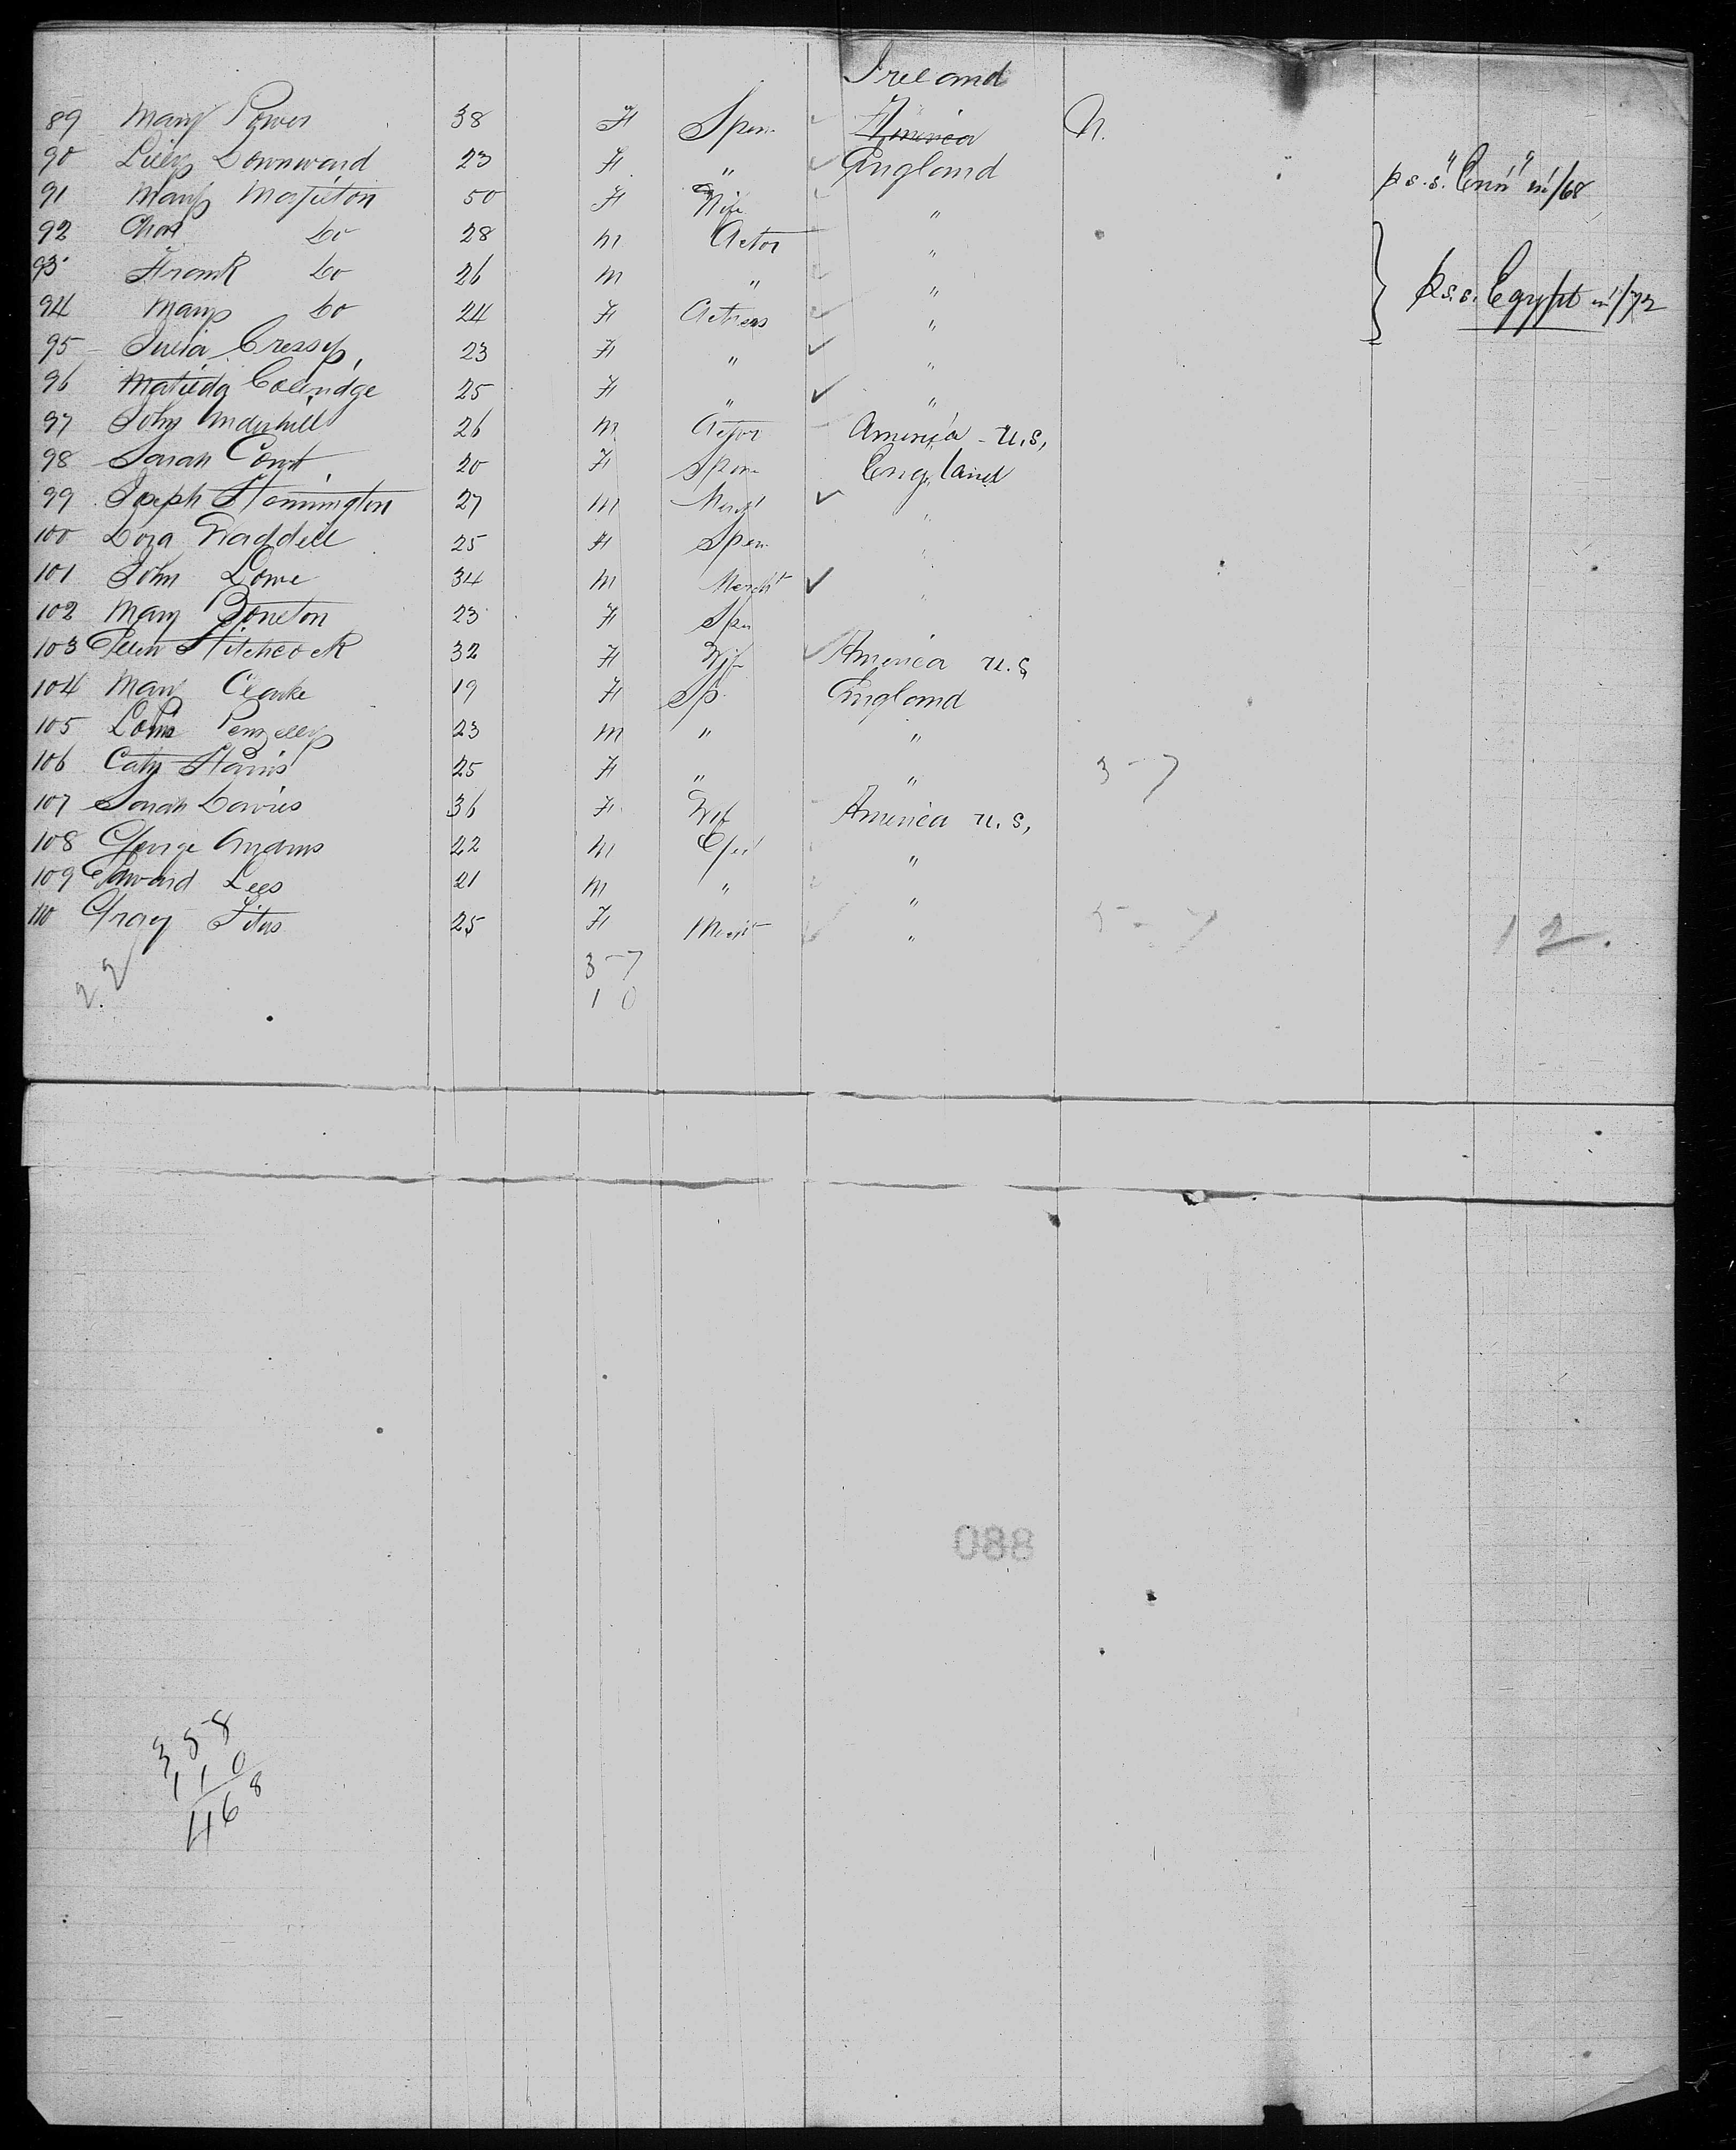 Ireland
89 Mary Power 38 F Spin America N.
90 Lilly Downward 23 F " England p s.s. "Erin" in /68
91 Mary 50 F Wife "
92 Chas do 28 m Actor "
93 Frank do 26 m " " p s.s. Egypt in /72
94 Mary do 24 F Actress "
95 Julia Cressy, 23 F " "
96 Matilda Coleridge 25 F " "
97 John Underhill 26 m Actor America - U.S,
98 Sarah Court 20 F Spin England
99 Joseph Hannington 27 m "
100 Dora Waddell 25 F Spin "
101 John Lowe 34 m Mercht "
102 Mary 23 F Spin
103 Ellen Hitchcock 32 F Wife America U.S
104 Mary Clarke 19 F Sp England
105 23 m " "
106 Cath Harris 25 F " " 3 - 7
107 Sarah Davies 36 F Wif America U.S,
108 George Andrews 22 m "
109 Edward Lees 21 m " "
110 Titus 25 F " 5 - 7 12.
22
3 - 7
1 0
088
358
110
468